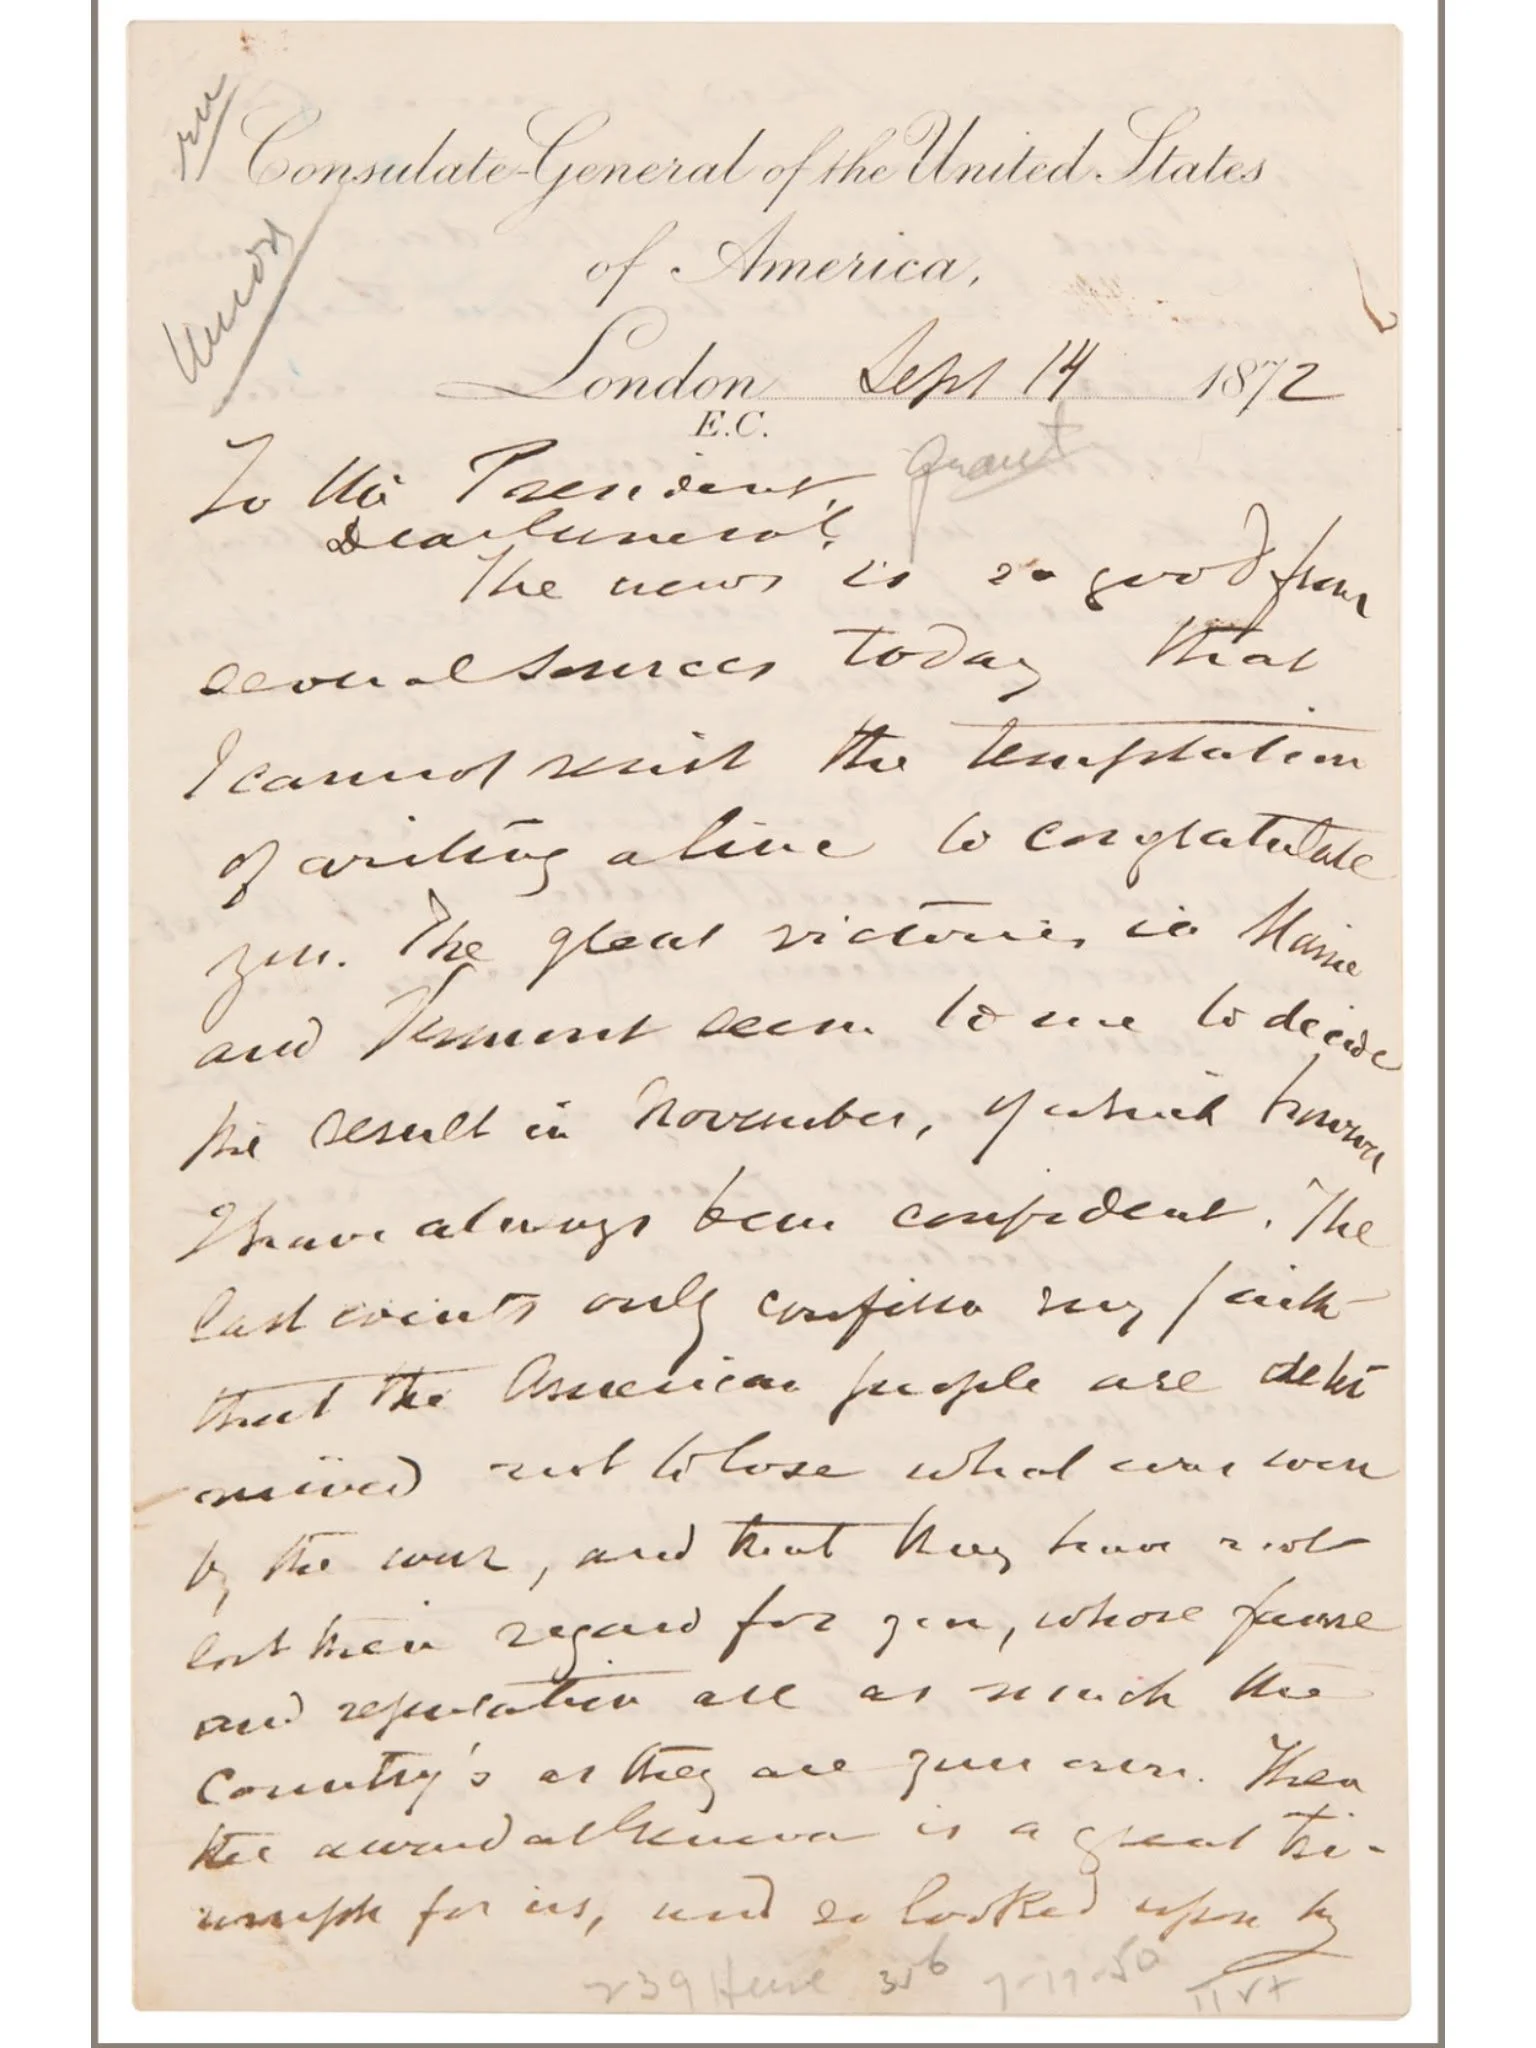 Consulate-General of the United States
of America,
London Sept 14 1872
E.C.
To the President, Grant
Dear General,
The news is so good from
several sources today that
I cannot resist the temptation
of writing a line to congratulate
you. The great victories in Maine
and Vermont seem to me to decide
the result in November, of which however
I have always been confident. The
last events only confirm my faith
that the American people are deter
mined not to lose what was won
by the war, and that they have not
lost their regard for you, whose fame
and reputation are as much the
Country's as they are your own. Then
the award at Geneva is a great tri-
umph for us, and so looked upon by
239 356 7-17-50